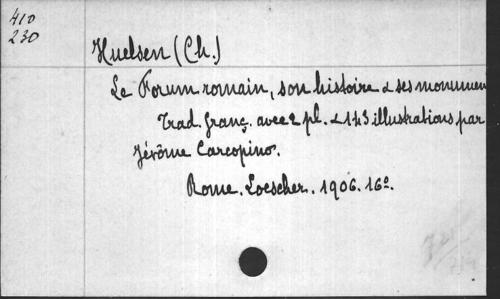 410
230
Huelsen (Ch.)
Le Forum romain, son histoire & ses monumen
Trad. franç. avec 2 pl. & 143 illustrations par
Jérôme Carcopino.
Rome. Loescher. 1906. 16º.